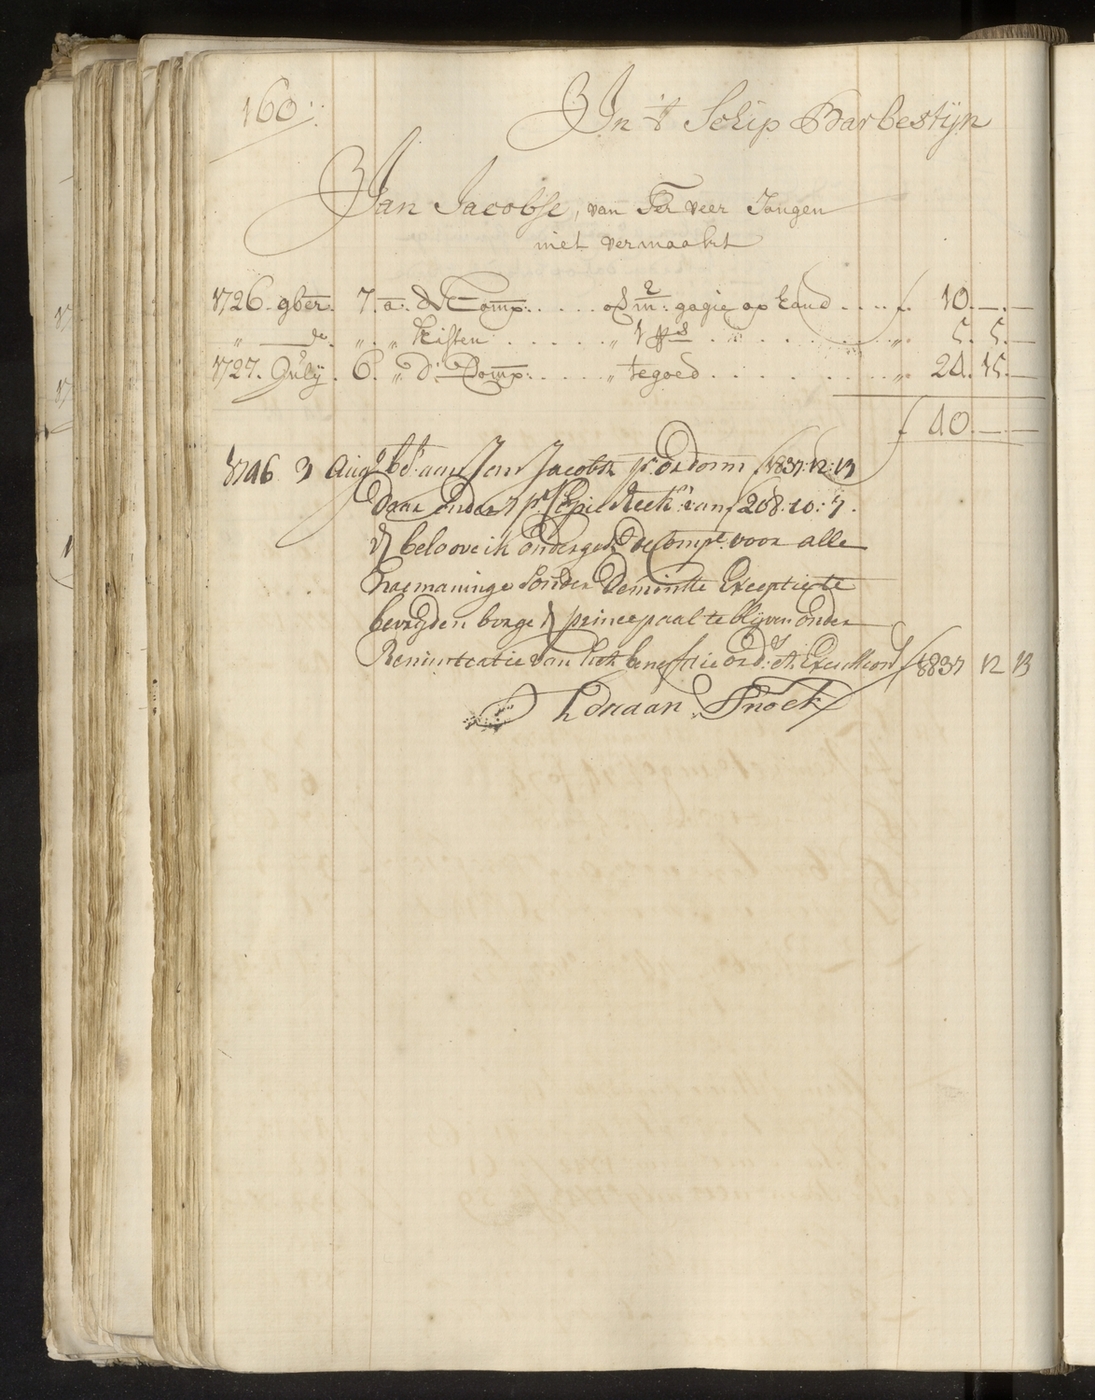 160:
In 't Schip Barbestijn
Jan Jacobse, van Ter veer Jongen
niet vermaakt
1726. 9ber. 7. a. d'E Comp: . . . . . 2/m: gagie op hand . . . . ƒ 10.—.—
„ — do. „ „ kisten . . . . . „ 1 ps . . . . . „ 5. 5.—
1727. July. 6. „ d'E Comp: . . . . „ tegoed . . . . . . . „ 24. 15.—
ƒ 40.—.—
1746 3 Augo bet: aan Jan Jacobse pr. ordonn ƒ 1837:12:13
daar onder pr. Reek: van ƒ 208:10:7.
beloove ik onderget: de Comp: voor alle
naemaninge Sonder de minste Exceptie te
bevrijden borge principaal te blijven onder
Renuntiatie van het benefitie ord: et Excussion ƒ 1837 12 13
Adriaan Snoek